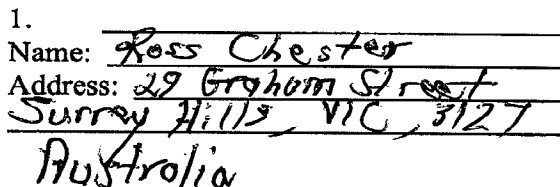 1.
Name: Ross Chester
Address: 29 Graham Street
Surrey Hills, VIC, 3127
Australia